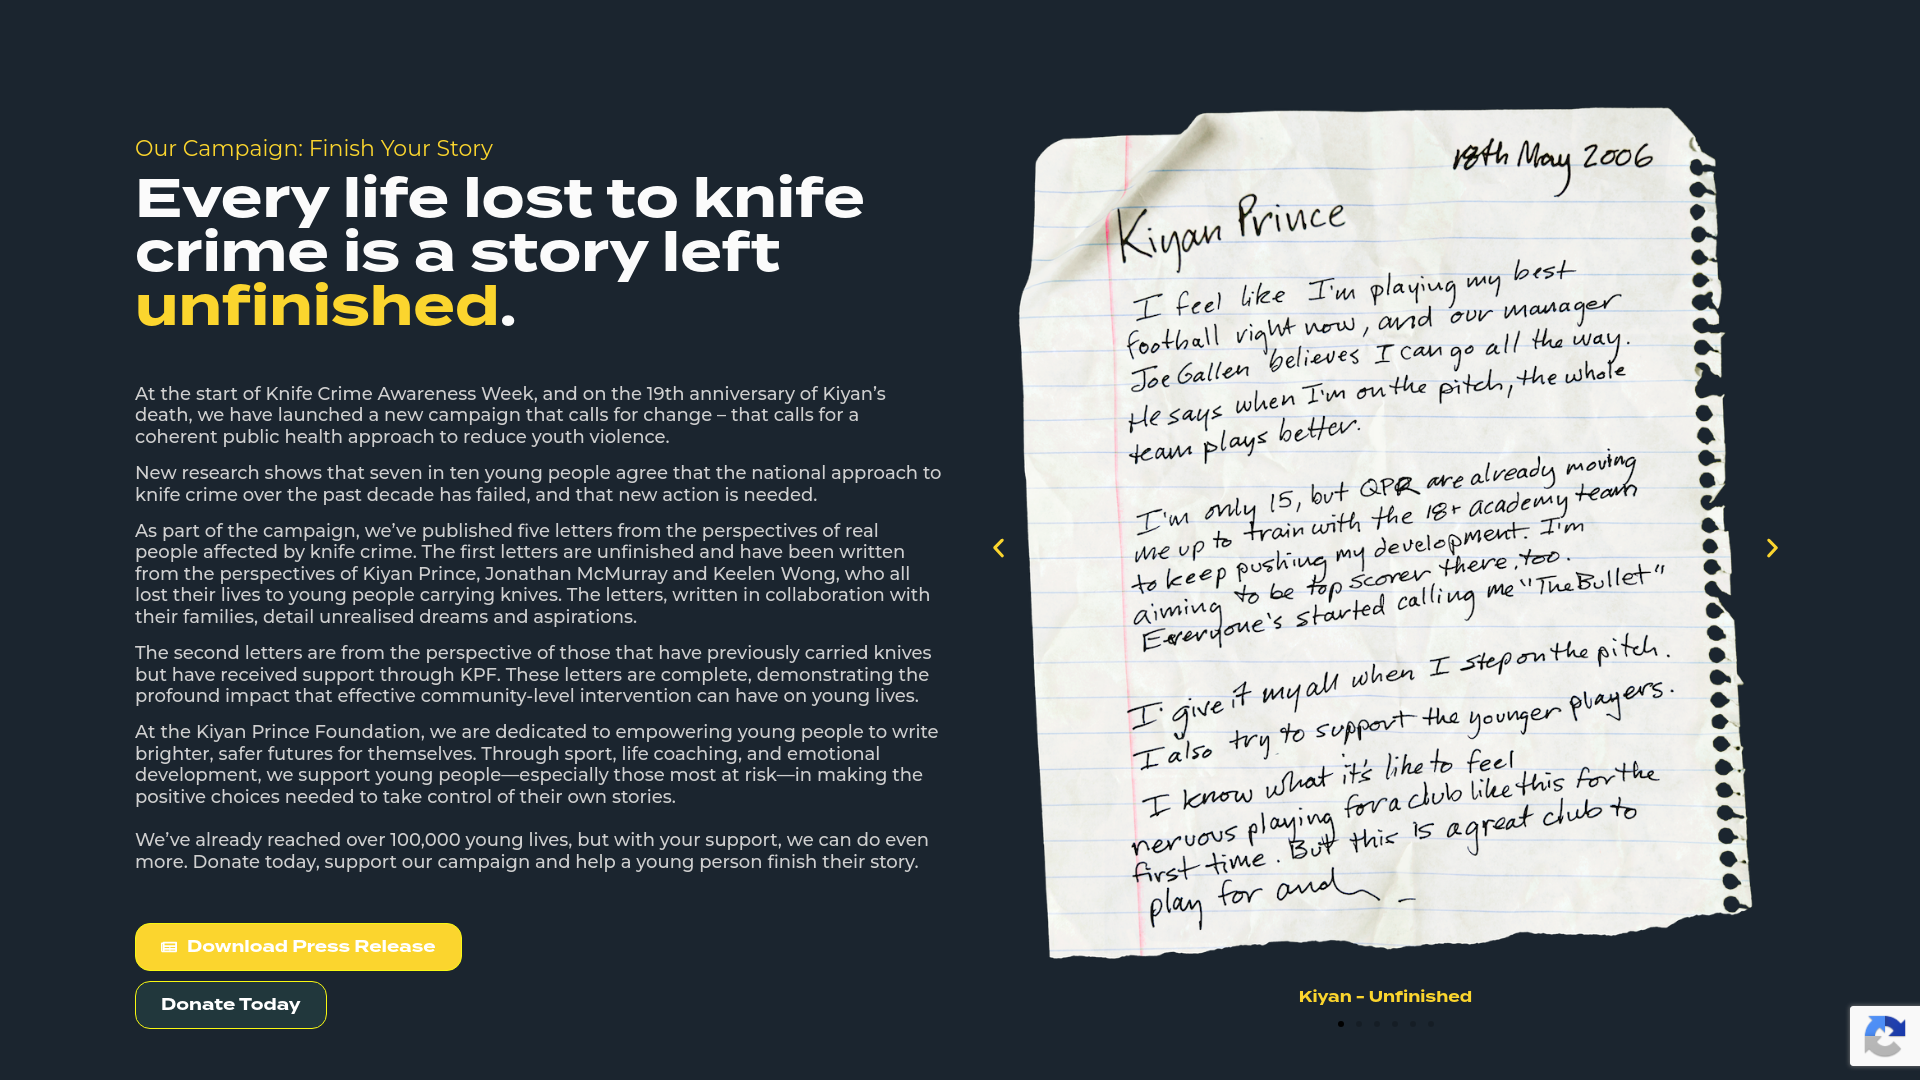 Our Campaign: Finish Your Story
Every life lost to knife
crime is a story left
unfinished.
At the start of Knife Crime Awareness Week, and on the 19th anniversary of Kiyan’s
death, we have launched a new campaign that calls for change – that calls for a
coherent public health approach to reduce youth violence.
New research shows that seven in ten young people agree that the national approach to
knife crime over the past decade has failed, and that new action is needed.
As part of the campaign, we’ve published five letters from the perspectives of real
people affected by knife crime. The first letters are unfinished and have been written
from the perspectives of Kiyan Prince, Jonathan McMurray and Keelen Wong, who all
lost their lives to young people carrying knives. The letters, written in collaboration with
their families, detail unrealised dreams and aspirations.
The second letters are from the perspective of those that have previously carried knives
but have received support through KPF. These letters are complete, demonstrating the
profound impact that effective community-level intervention can have on young lives.
At the Kiyan Prince Foundation, we are dedicated to empowering young people to write
brighter, safer futures for themselves. Through sport, life coaching, and emotional
development, we support young people—especially those most at risk—in making the
positive choices needed to take control of their own stories.
We’ve already reached over 100,000 young lives, but with your support, we can do even
more. Donate today, support our campaign and help a young person finish their story.
Download Press Release
Donate Today
18th May 2006
Kiyan Prince
I feel like I'm playing my best
football right now, and our manager
Joe Gallen believes I can go all the way.
He says when I'm on the pitch, the whole
team plays better.
I'm only 15, but QPR are already moving
me up to train with the 18+ academy team
to keep pushing my development. I'm
aiming to be top scorer there, too.
Everyone's started calling me "The Bullet"
I give it my all when I step on the pitch.
I also try to support the younger players.
I know what it's like to feel
nervous playing for a club like this for the
first time. But this is a great club to
play for and
Kiyan – Unfinished